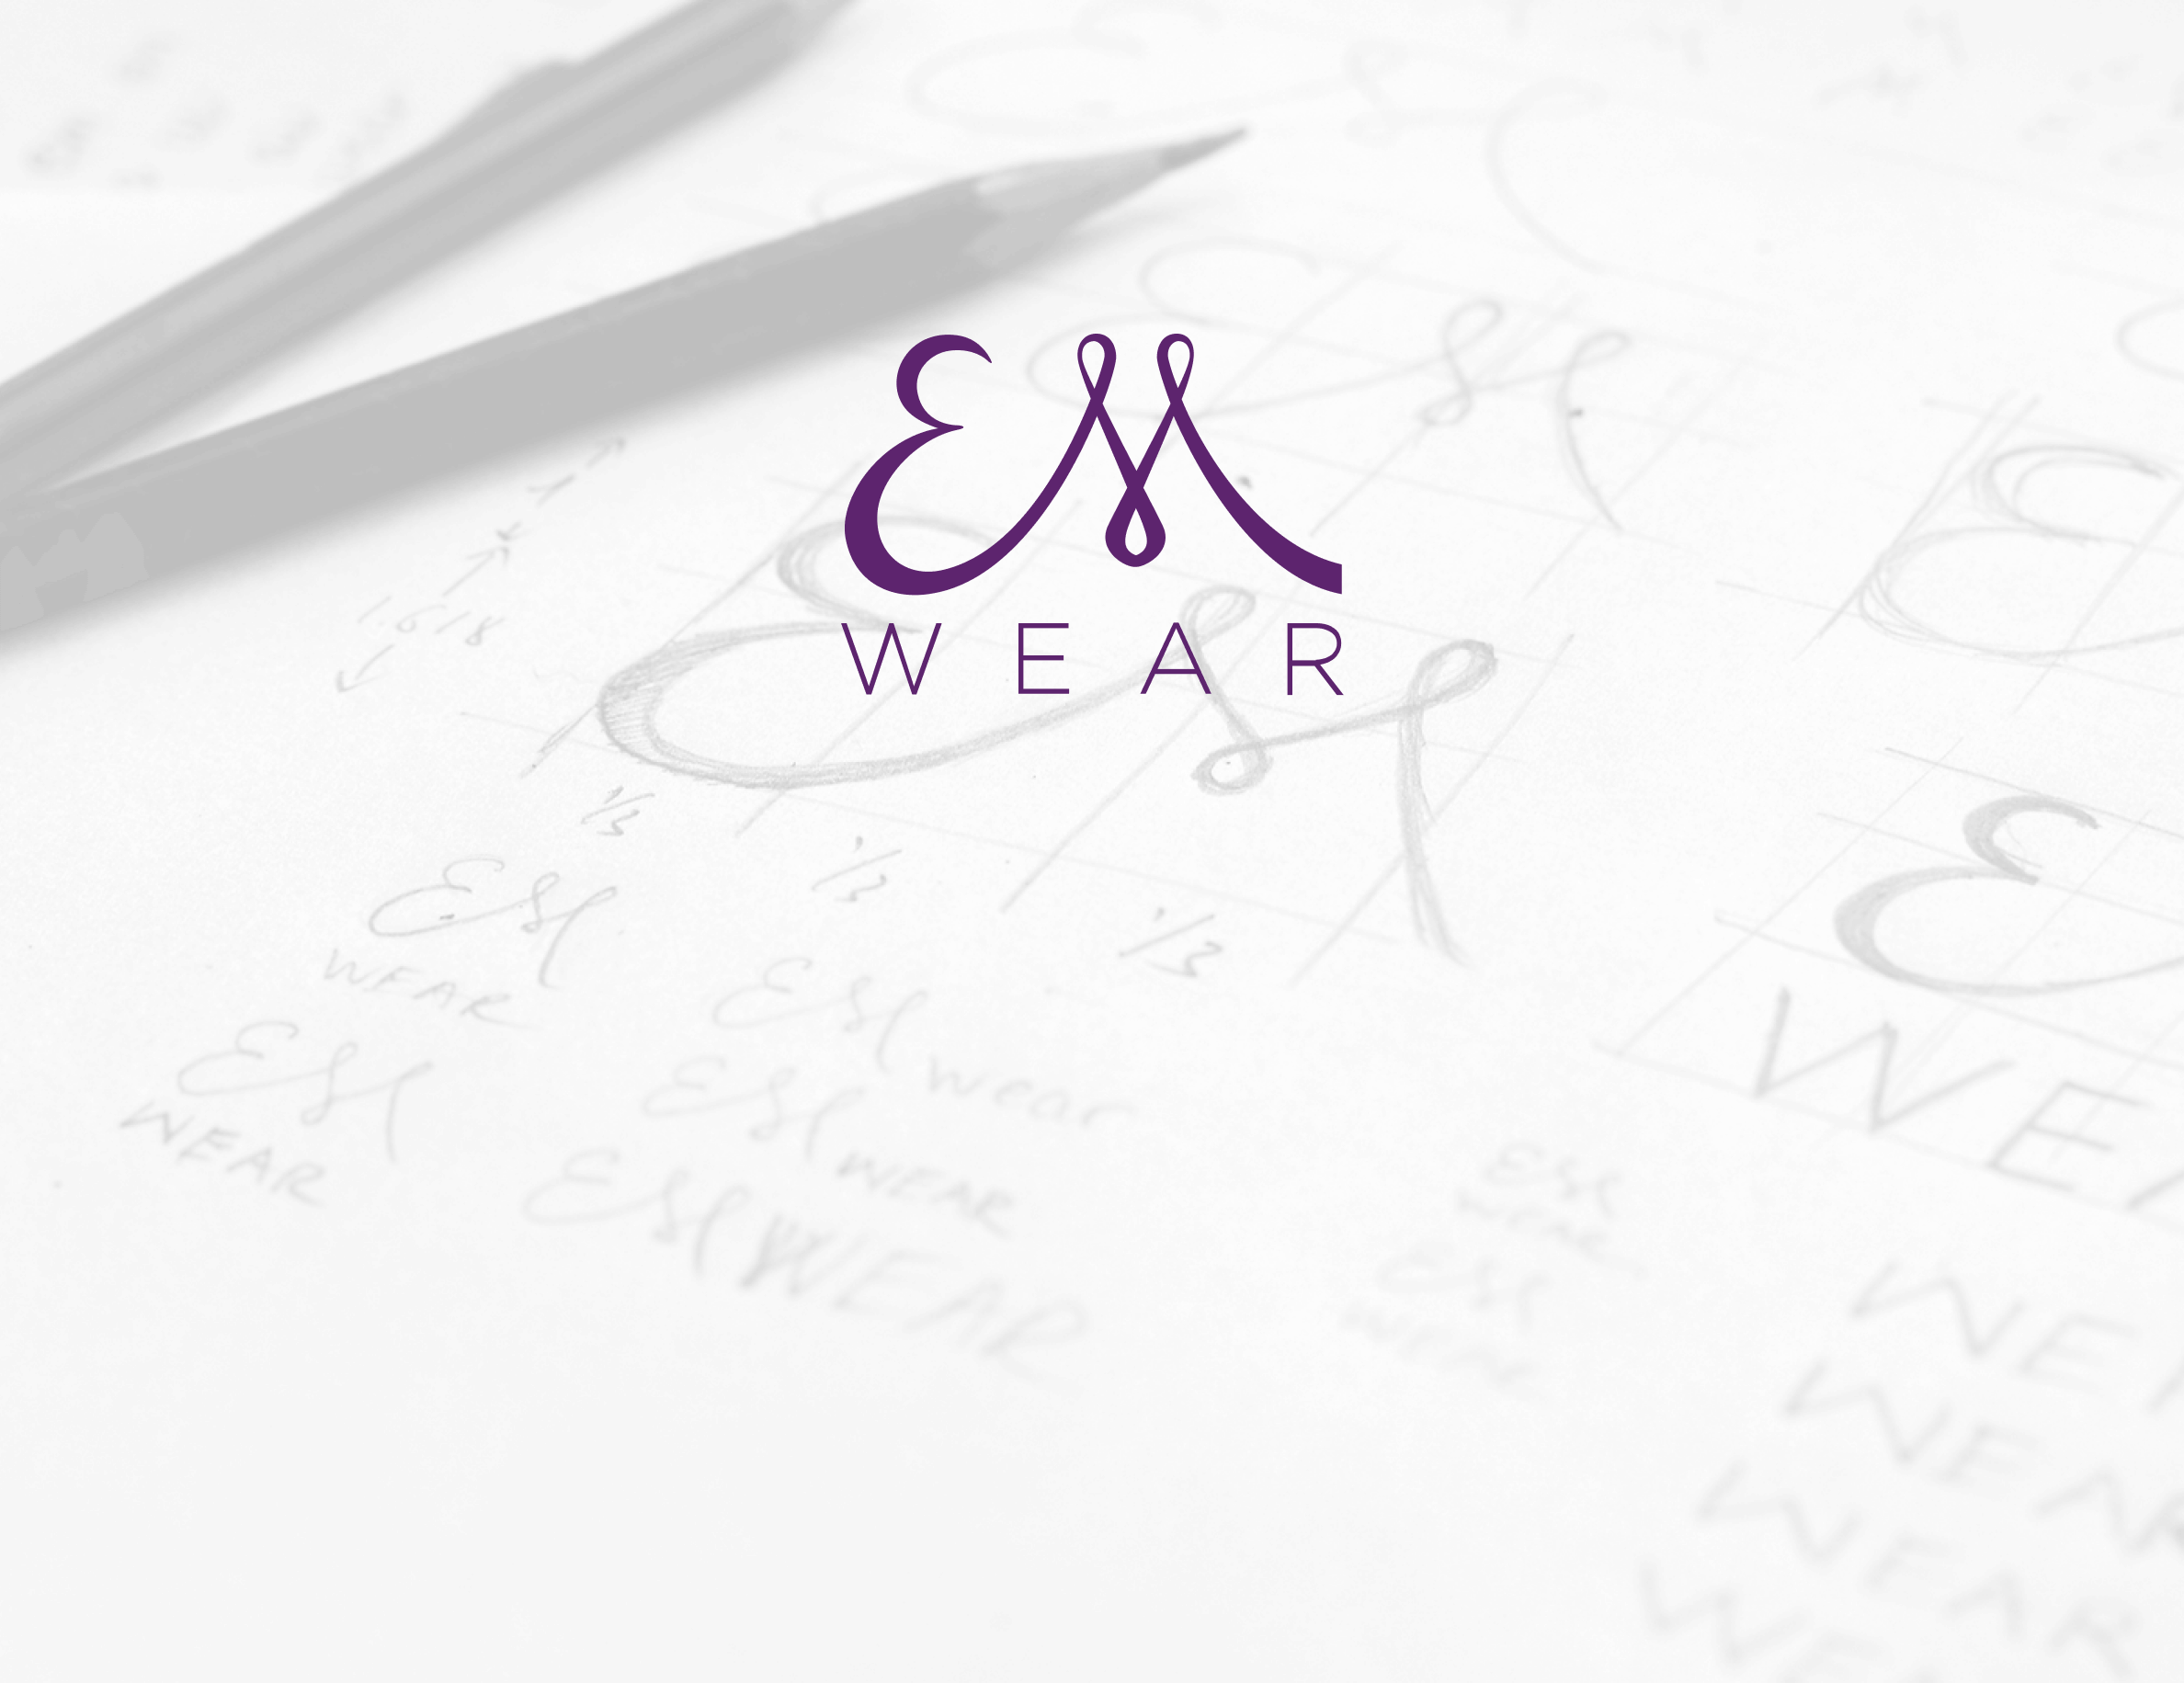 EM
WEAR
1.618
1/3
1/3
1/3
EM
WEAR
EM
wear
EM
WEAR
EM
WEAR
EM WEAR
E
WE
EM
WEAR
EM
WEAR
WE
WEAR
WEAR
WEA